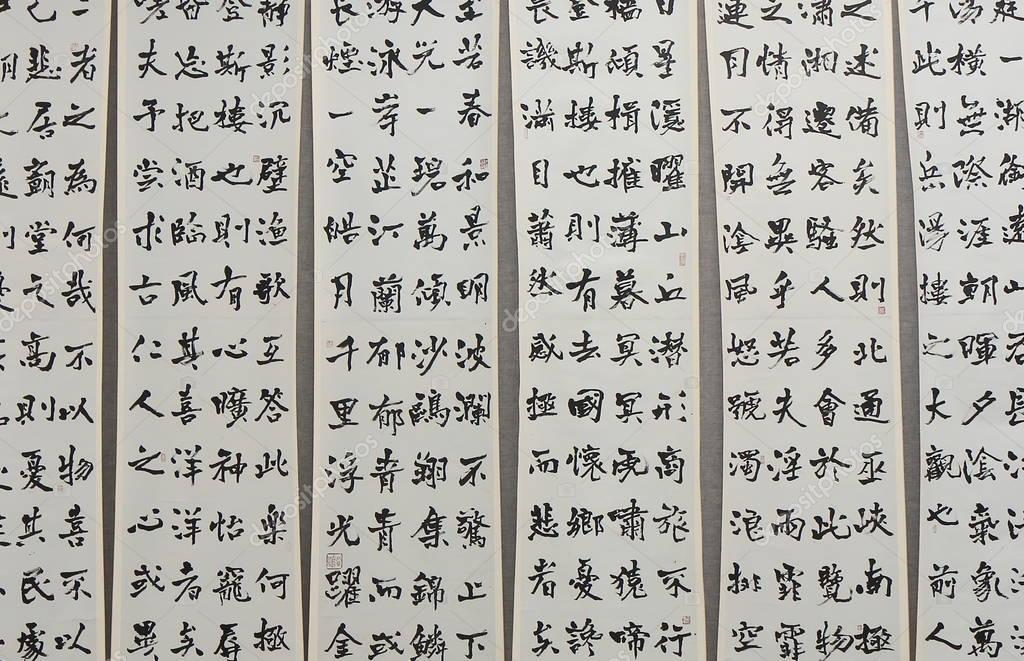 庭一湖銜遠山吞長江
湯橫無際涯朝暉夕陰氣象萬
千此則岳陽樓之大觀也前人
之述備矣然則北通巫峽南極
瀟湘遷客騷人多會於此覽物
之情得無異乎若夫淫雨霏霏
連月不開陰風怒號濁浪排空
日星隱曜山丘潛形商旅不行
檣傾楫摧薄暮冥冥虎嘯猿啼
登斯樓也則有去國懷鄉憂讒
畏譏滿目蕭然感極而悲者矣
至若春和景明波瀾不驚上下
天光一碧萬頃沙鷗翔集錦鱗
游泳岸芷汀蘭郁郁青青而或
長煙一空皓月千里浮光躍金
靜影沉璧漁歌互答此樂何極
登斯樓也則有心曠神怡寵辱
皆忘把酒臨風其喜洋洋者矣
嗟夫予嘗求古仁人之心或異
二者之為何哉不以物喜不以
己悲居廟堂之高則憂其民處